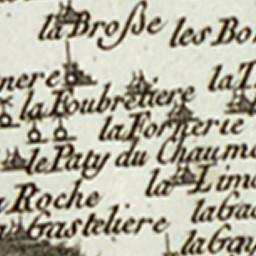 la Broſse
les Bo
nere
la T
la Foubretiere
la Fornerie
le Paty du Chaume
la Lim
Roche
la Gasteliere
la Ga
la Gay